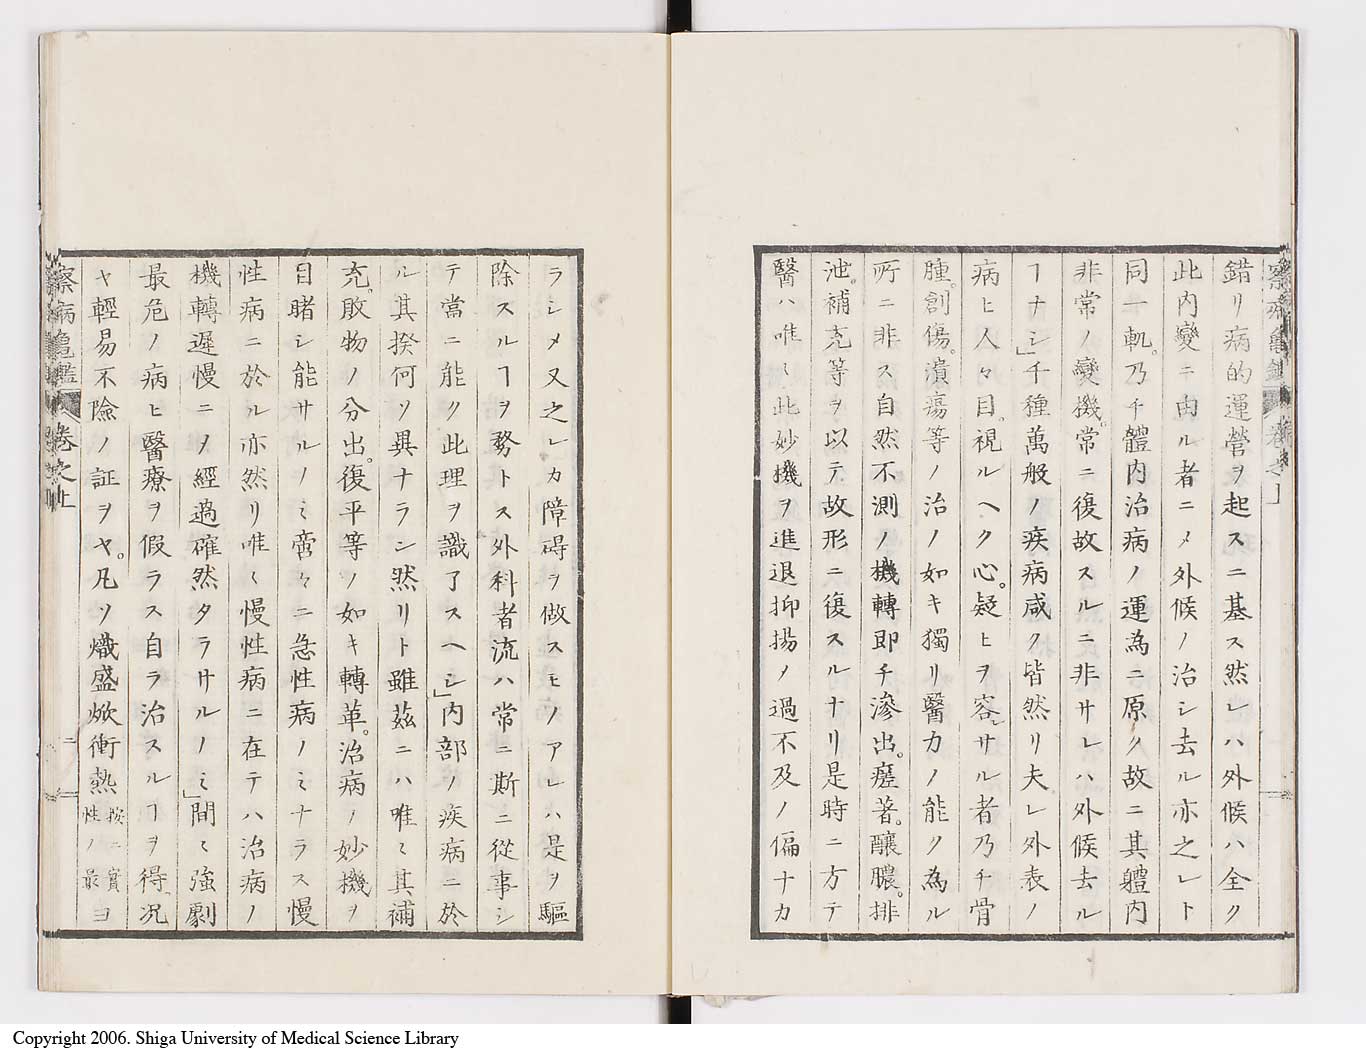 錯リ病的運營ヲ起スニ基ス然レハ外候ハ全ク
此内變ニ由ル者ニメ外候ノ治シ去ル亦之レト
同一軌。乃チ體内治病ノ運為ニ原ク故ニ其軆内
非常ノ變機。常ニ復故スルニ非サレハ外候去ル
ヿナシ」千種萬般ノ疾病咸ク皆然リ夫レ外表ノ
病ヒ人々目。視ルヘク心。疑ヒヲ容レサル者乃チ骨
腫。創傷。潰瘍等ノ治ノ如キ獨リ醫力ノ能ク為ル
所ニ非ス自然不測ノ機轉即チ滲出。癒著。釀膿。排
泄。補充等ヲ以テ故形ニ復スルナリ是時ニ方テ
醫ハ唯〻此妙機ヲ進退抑揚ノ過不及ノ偏ナカ
ラシメ又之レカ障碍ヲ做スモノアレハ是ヲ驅
除スルヿヲ務トス外科者流ハ常ニ斯ニ從事シ
テ當ニ能ク此理ヲ識了スヘシ」内部ノ疾病ニ於
ル其揆何ソ異ナラン然リト雖茲ニハ唯〻其補
充。敗物ノ分出。復平等ノ如キ轉革。治病ノ妙機ヲ
目睹シ能サルノミ啻々ニ急性病ノミナラス慢
性病ニ於ル亦然リ唯〻慢性病ニ在テハ治病ノ
機轉遲慢ニノ經過確然タラサルノミ」間〻強劇
最危ノ病ヒ醫療ヲ假ラス自ラ治スルヿヲ得、况
ヤ輕易不險ノ証ヲヤ。凡ソ熾盛焮衝熱
按ニ實
性ノ最ヨ
察病亀鑑
卷之上
二
Copyright 2006. Shiga University of Medical Science Library